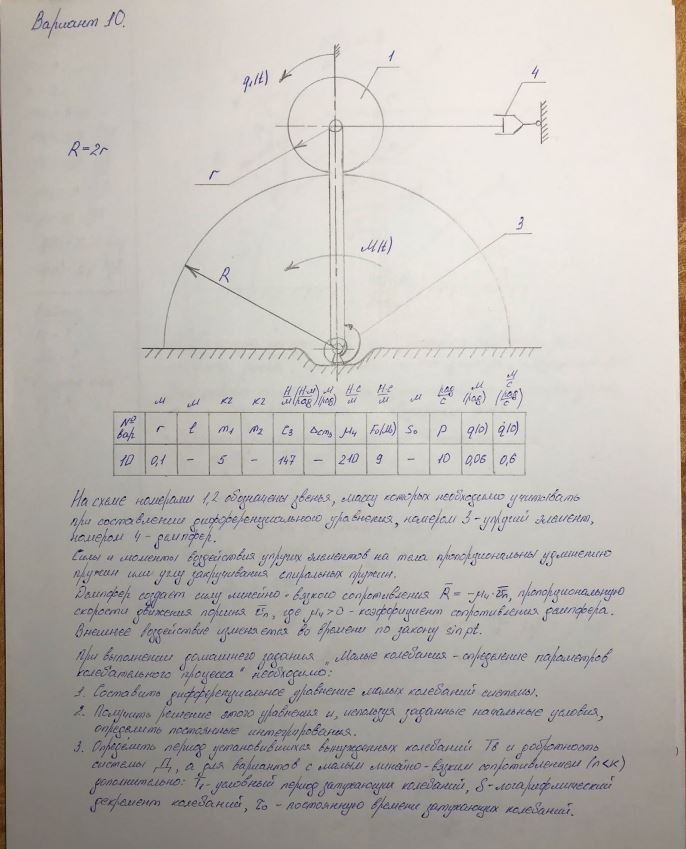 Вариант 10.
1
q₁(t)
4
R = 2r
r
3
M(t)
R
м м кг кг Н/м (Н·м/рад) м (рад) Н·с/м Н·с/м м рад/с м (рад) м/с (рад/с)
№ вар r l m₁ m₂ c₃ Δcт₃ μ₄ F₀(M₀) S₀ p q(0) q̇(0)
10 0,1 – 5 – 147 – 210 9 – 10 0,06 0,6
На схеме номерами 1,2 обозначены звенья, массу которых необходимо учитывать
при составлении дифференциального уравнения, номером 3 - упругий элемент,
номером 4 - демпфер.
Силы и моменты воздействия упругих элементов на тела пропорциональны удлинению
пружин или углу закручивания спиральных пружин.
Демпфер создает силу линейно-вязкого сопротивления R̄ = -μ₄·v̄п, пропорциональную
скорости движения поршня v̄п, где μ₄>0 - коэффициент сопротивления демпфера.
Внешнее воздействие изменяется во времени по закону sin pt.
При выполнении домашнего задания „Малые колебания - определение параметров
колебательного процесса" необходимо:
1. Составить дифференциальное уравнение малых колебаний системы.
2. Получить решение этого уравнения и, используя заданные начальные условия,
определить постоянные интегрирования.
3. Определить период установившихся вынужденных колебаний Tв и добротность
системы Д, а для вариантов с малым линейно-вязким сопротивлением (n<k)
дополнительно: T₁ - условный период затухающих колебаний, δ - логарифмический
декремент колебаний, τ₀ - постоянную времени затухающих колебаний.